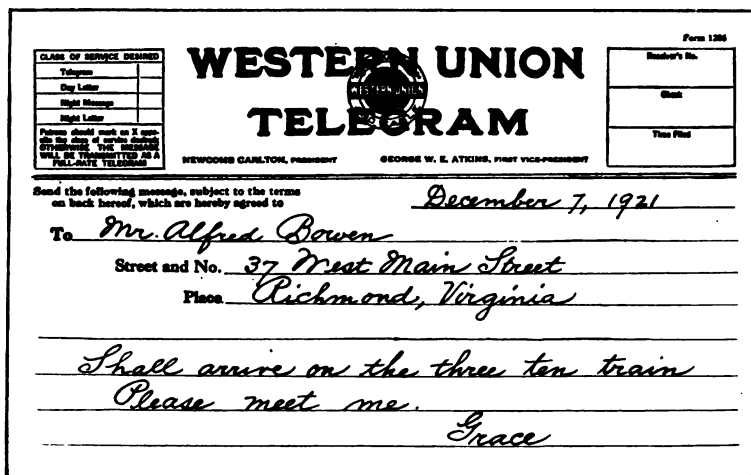 Form 1206
CLASS OF SERVICE DESIRED
Telegram
Day Letter
Night Message
Night Letter
Patrons should mark an X oppo-
site the class of service desired;
OTHERWISE THE MESSAGE
WILL BE TRANSMITTED AS A
FULL-RATE TELEGRAM
WESTERN UNION
WESTERN UNION
TELEGRAM
NEWCOMB CARLTON, PRESIDENT GEORGE W. E. ATKINS, FIRST VICE-PRESIDENT
Receiver's No.
Check
Time Filed
Send the following message, subject to the terms
on back hereof, which are hereby agreed to
December 7, 1921
To Mr. Alfred Bowen
Street and No. 37 West Main Street
Place Richmond, Virginia
Shall arrive on the three ten train
Please meet me.
Grace